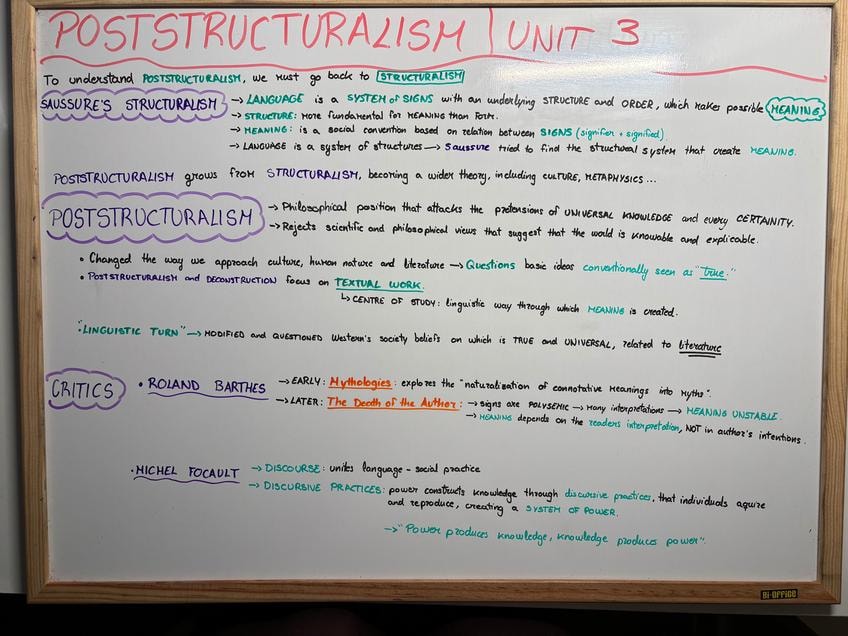 POSTSTRUCTURALISM | UNIT 3
To understand POSTSTRUCTURALISM, we must go back to STRUCTURALISM
SAUSSURE'S STRUCTURALISM → LANGUAGE is a SYSTEM of SIGNS with an underlying STRUCTURE and ORDER, which makes possible MEANING
→ STRUCTURE: more fundamental for MEANING than FORM.
→ MEANING: is a social convention based on relation between SIGNS (signifer + signified).
→ LANGUAGE is a system of structures → Saussure tried to find the structural system that create MEANING.
POSTSTRUCTURALISM grows from STRUCTURALISM, becoming a wider theory, including CULTURE, METAPHYSICS...
POSTSTRUCTURALISM → Philosophical position that attacks the pretensions of UNIVERSAL KNOWLEDGE and every CERTAINITY.
→ Rejects scientific and philosophical views that suggest that the world is knowable and explicable.
• Changed the way we approach culture, human nature and literature → Questions basic ideas conventionally seen as "true."
• POSTSTRUCTURALISM and DECONSTRUCTION focus on TEXTUAL WORK.
↳ CENTRE OF STUDY: linguistic way through which MEANING is created.
"LINGUISTIC TURN" → MODIFIED and QUESTIONED Western's society beliefs on which is TRUE and UNIVERSAL, related to literature
CRITICS • ROLAND BARTHES → EARLY: Mythologies: explores the "naturalization of connotative meanings into myths".
→ LATER: The Death of the Author: → signs are POLYSEMIC → many interpretations → MEANING UNSTABLE.
→ MEANING depends on the readers interpretation, NOT in author's intentions.
• MICHEL FOCAULT → DISCOURSE: unites language - social practice
→ DISCURSIVE PRACTICES: power constructs knowledge through discursive practices, that individuals aquire
and reproduce, creating a SYSTEM OF POWER.
→ "Power produces knowledge, knowledge produces power".
Bi-OFFICE